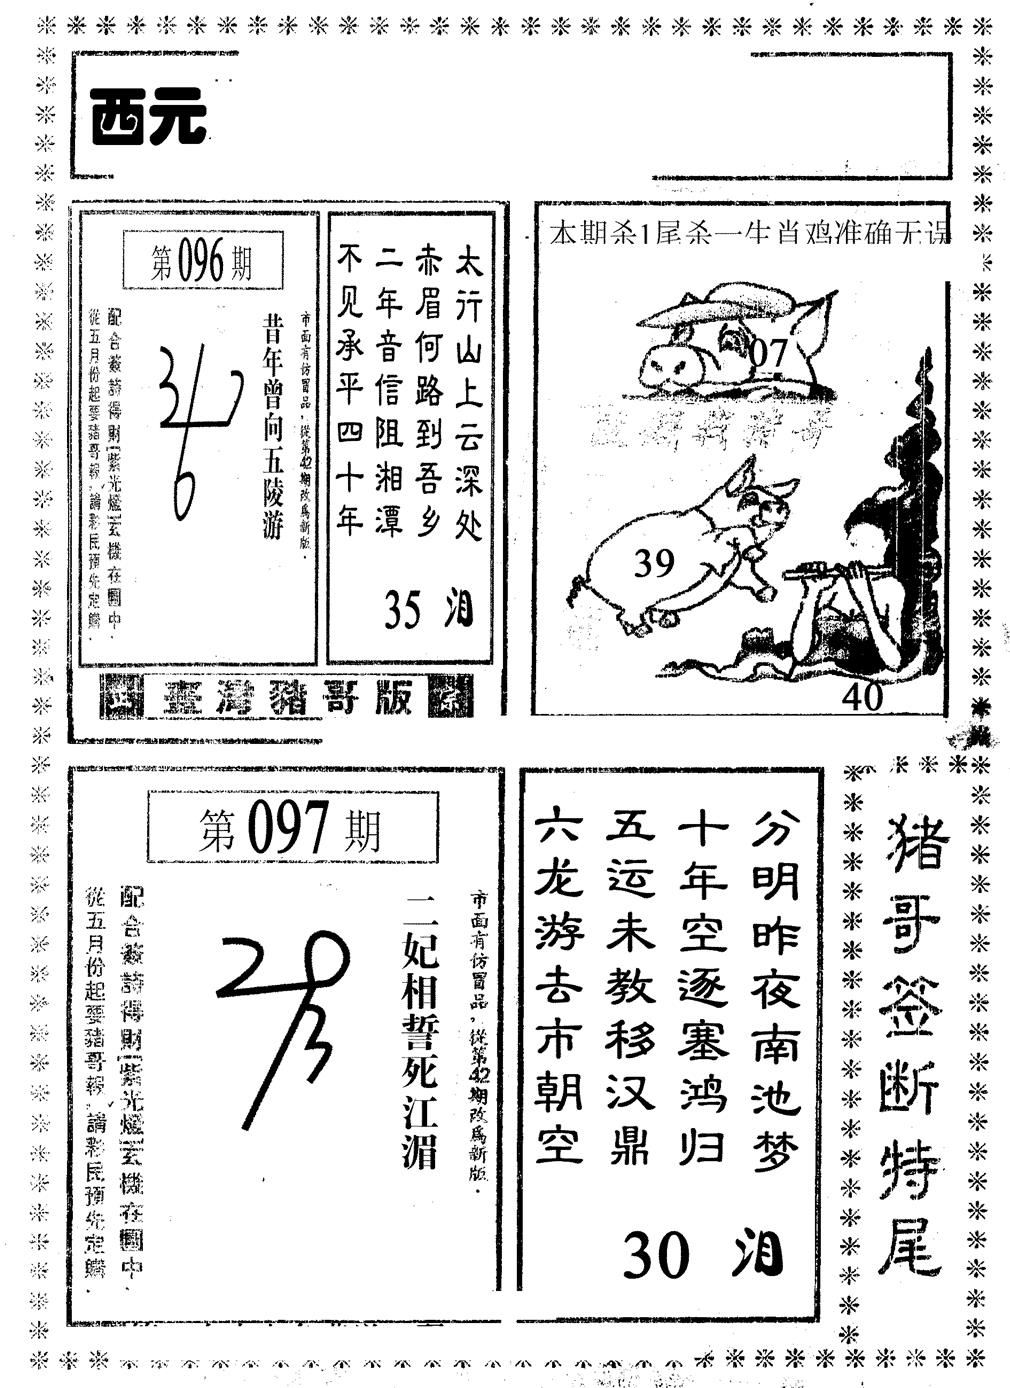 西元
第096期
市面有仿冒品，從第42期改爲新版.
昔年曾向五陵游
配合簽詩得財(紫光燈)玄機在圖中.
從五月份起要豬哥報,請彩民預先定購.
太行山上云深处
赤眉何路到吾乡
二年音信阻湘潭
不见承平四十年
35 泪
臺灣豬哥版
本期杀1尾杀一生肖鸡准确无误
07
39
40
第097期
市面有仿冒品，從第42期改爲新版.
二妃相誓死江湄
配合簽詩得財(紫光燈)玄機在圖中.
從五月份起要豬哥報,請彩民預先定購.
分明昨夜南池梦
十年空逐塞鸿归
五运未教移汉鼎
六龙游去市朝空
30 泪
猪哥签断特尾